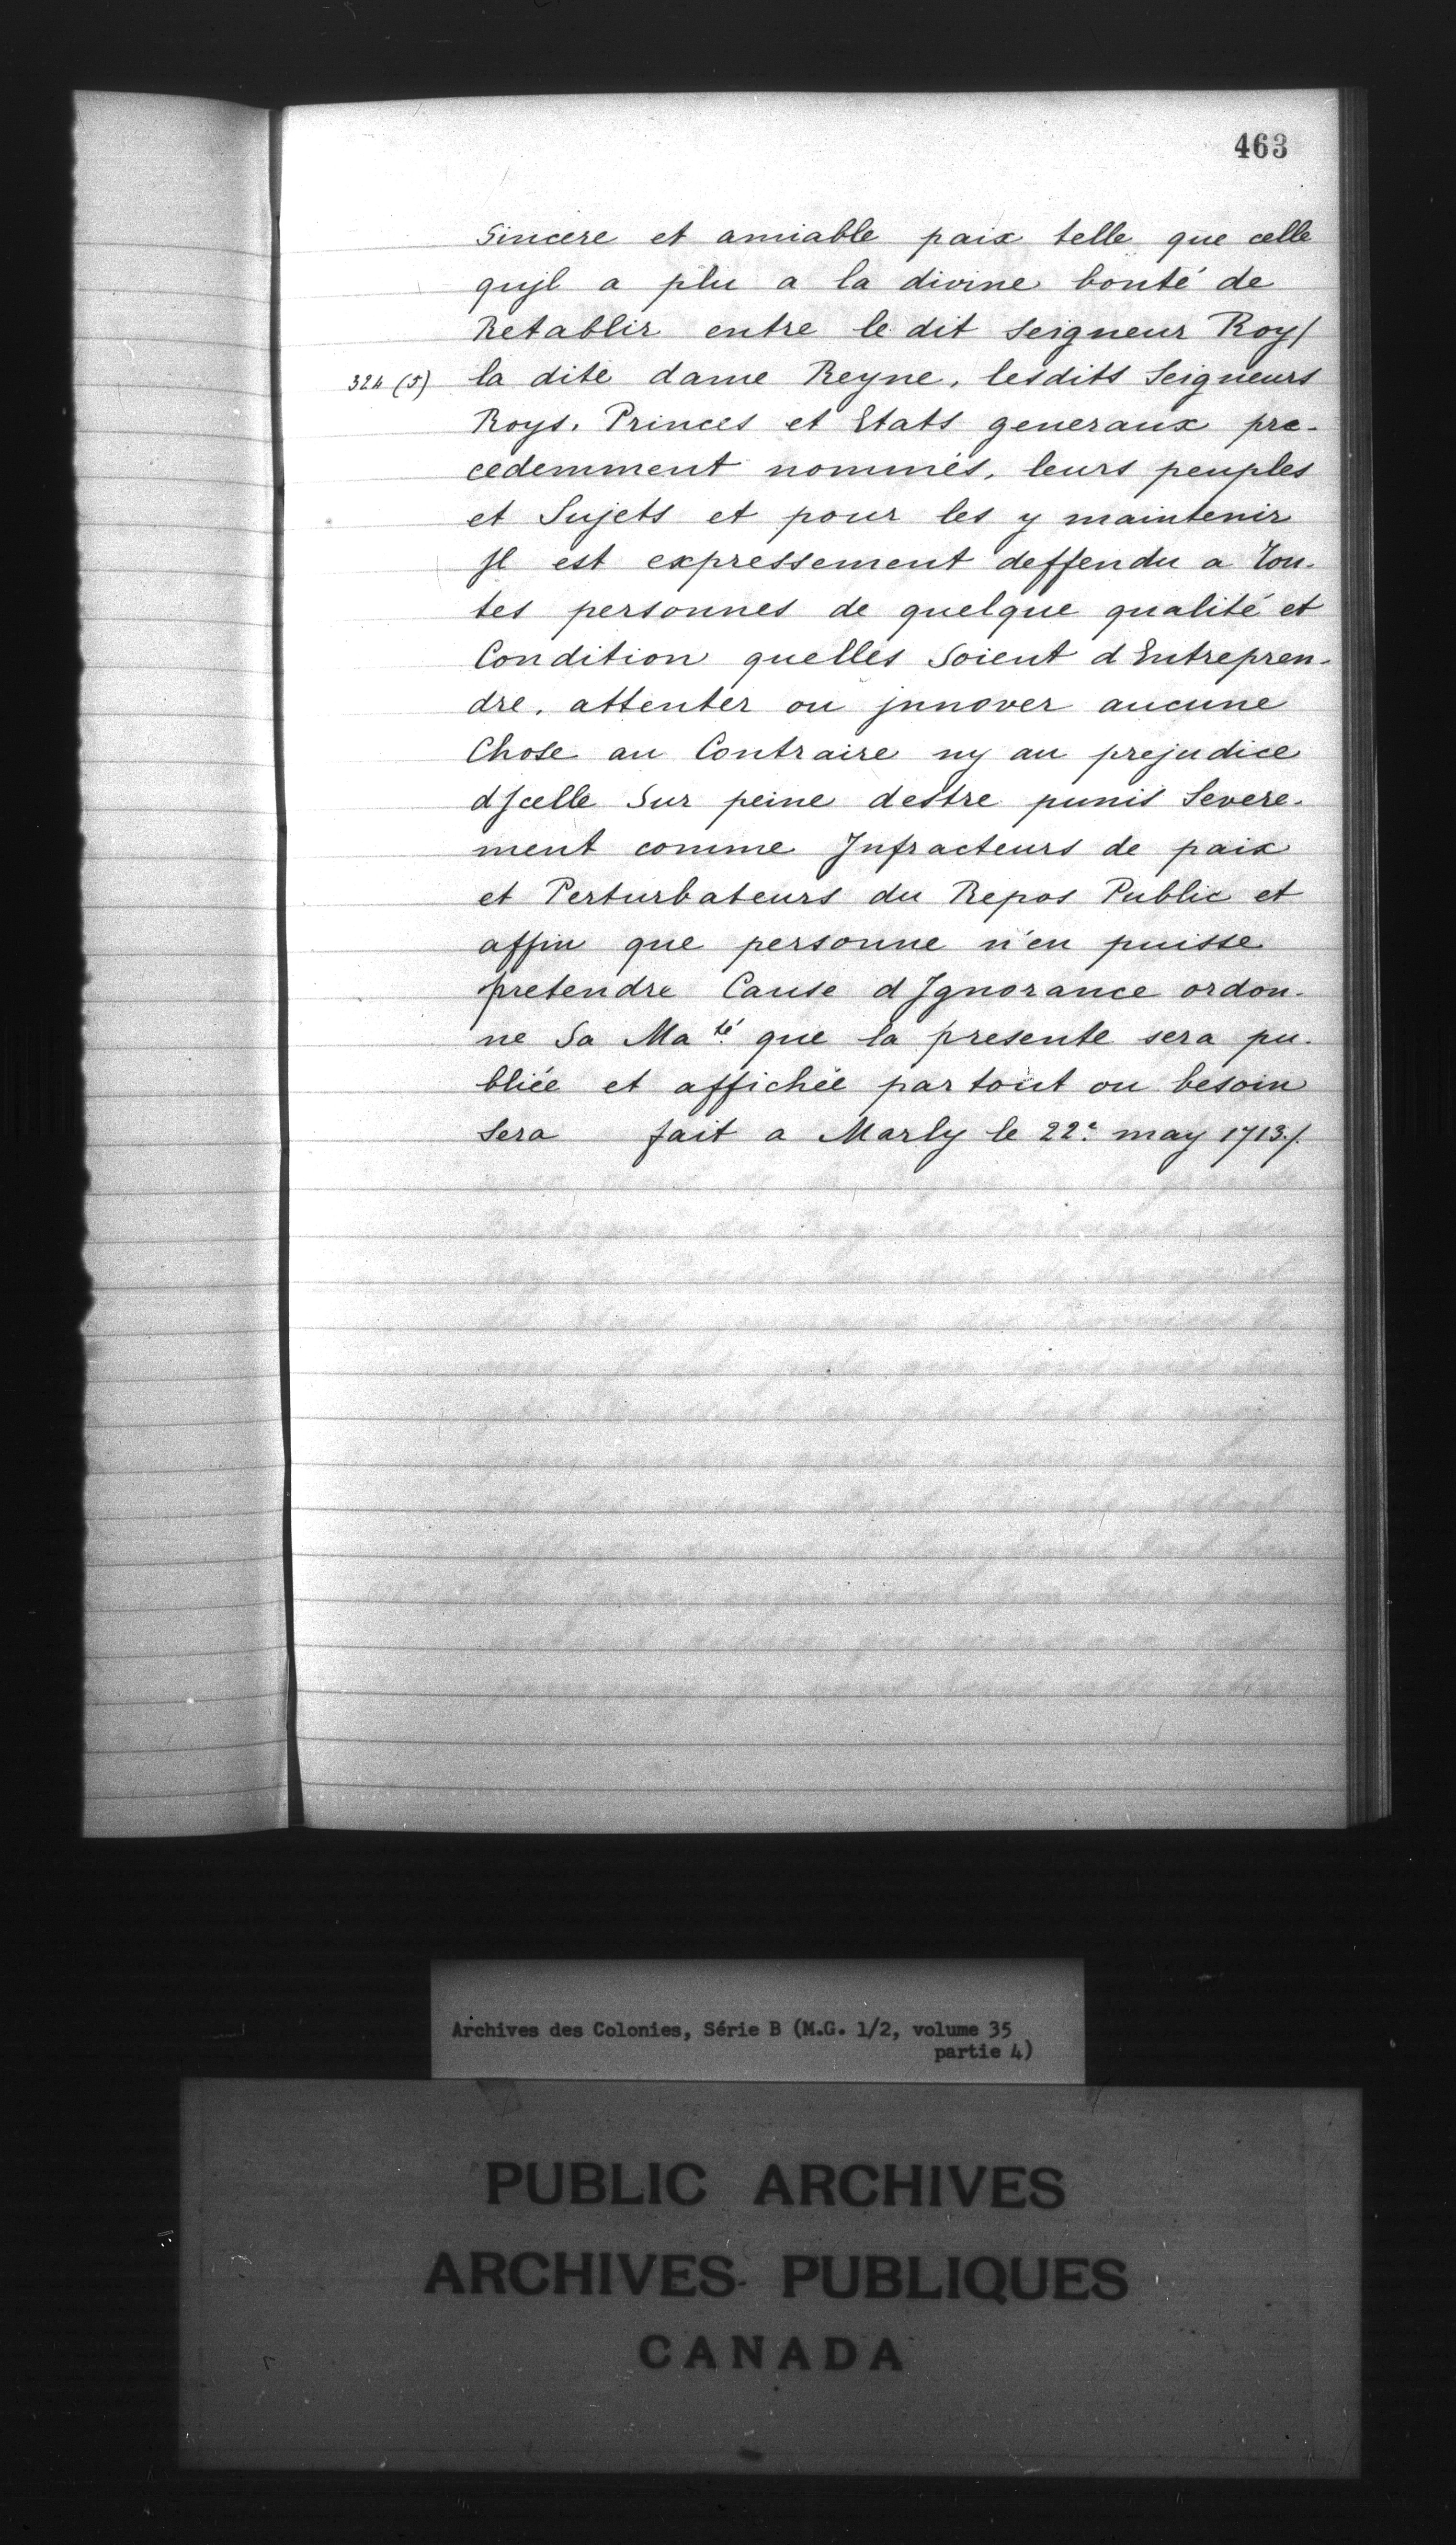 463
Sincere et amiable paix telle que celle
qujl a plu a la divine bonté de
Retablir entre le dit Seigneur Roy/
324 (5) la dite dame Reyne, lesdits Seigneurs
Roys, Princes et Etats generaux pre-
cedemment nommés, leurs peuples
et Sujets et pour les y maintenir
Jl est expressement deffendu a Tou-
tes personnes de quelque qualité et
Condition quelles Soient d Entrepren-
dre, attenter ou jnnover aucune
Chose au Contraire ny au prejudice
dJcelle Sur peine destre punis Severe-
ment comme Jnfracteurs de paix
et Perturbateurs du Repos Public et
affin que personne n'en puisse
pretendre Cause d Jgnorance ordon-
ne Sa Ma.té que la presente sera pu-
bliée et affichée partout ou besoin
Sera fait a Marly le 22.e may 1713./.
Archives des Colonies, Série B (M.G. 1/2, volume 35
partie 4)
PUBLIC ARCHIVES
ARCHIVES PUBLIQUES
CANADA